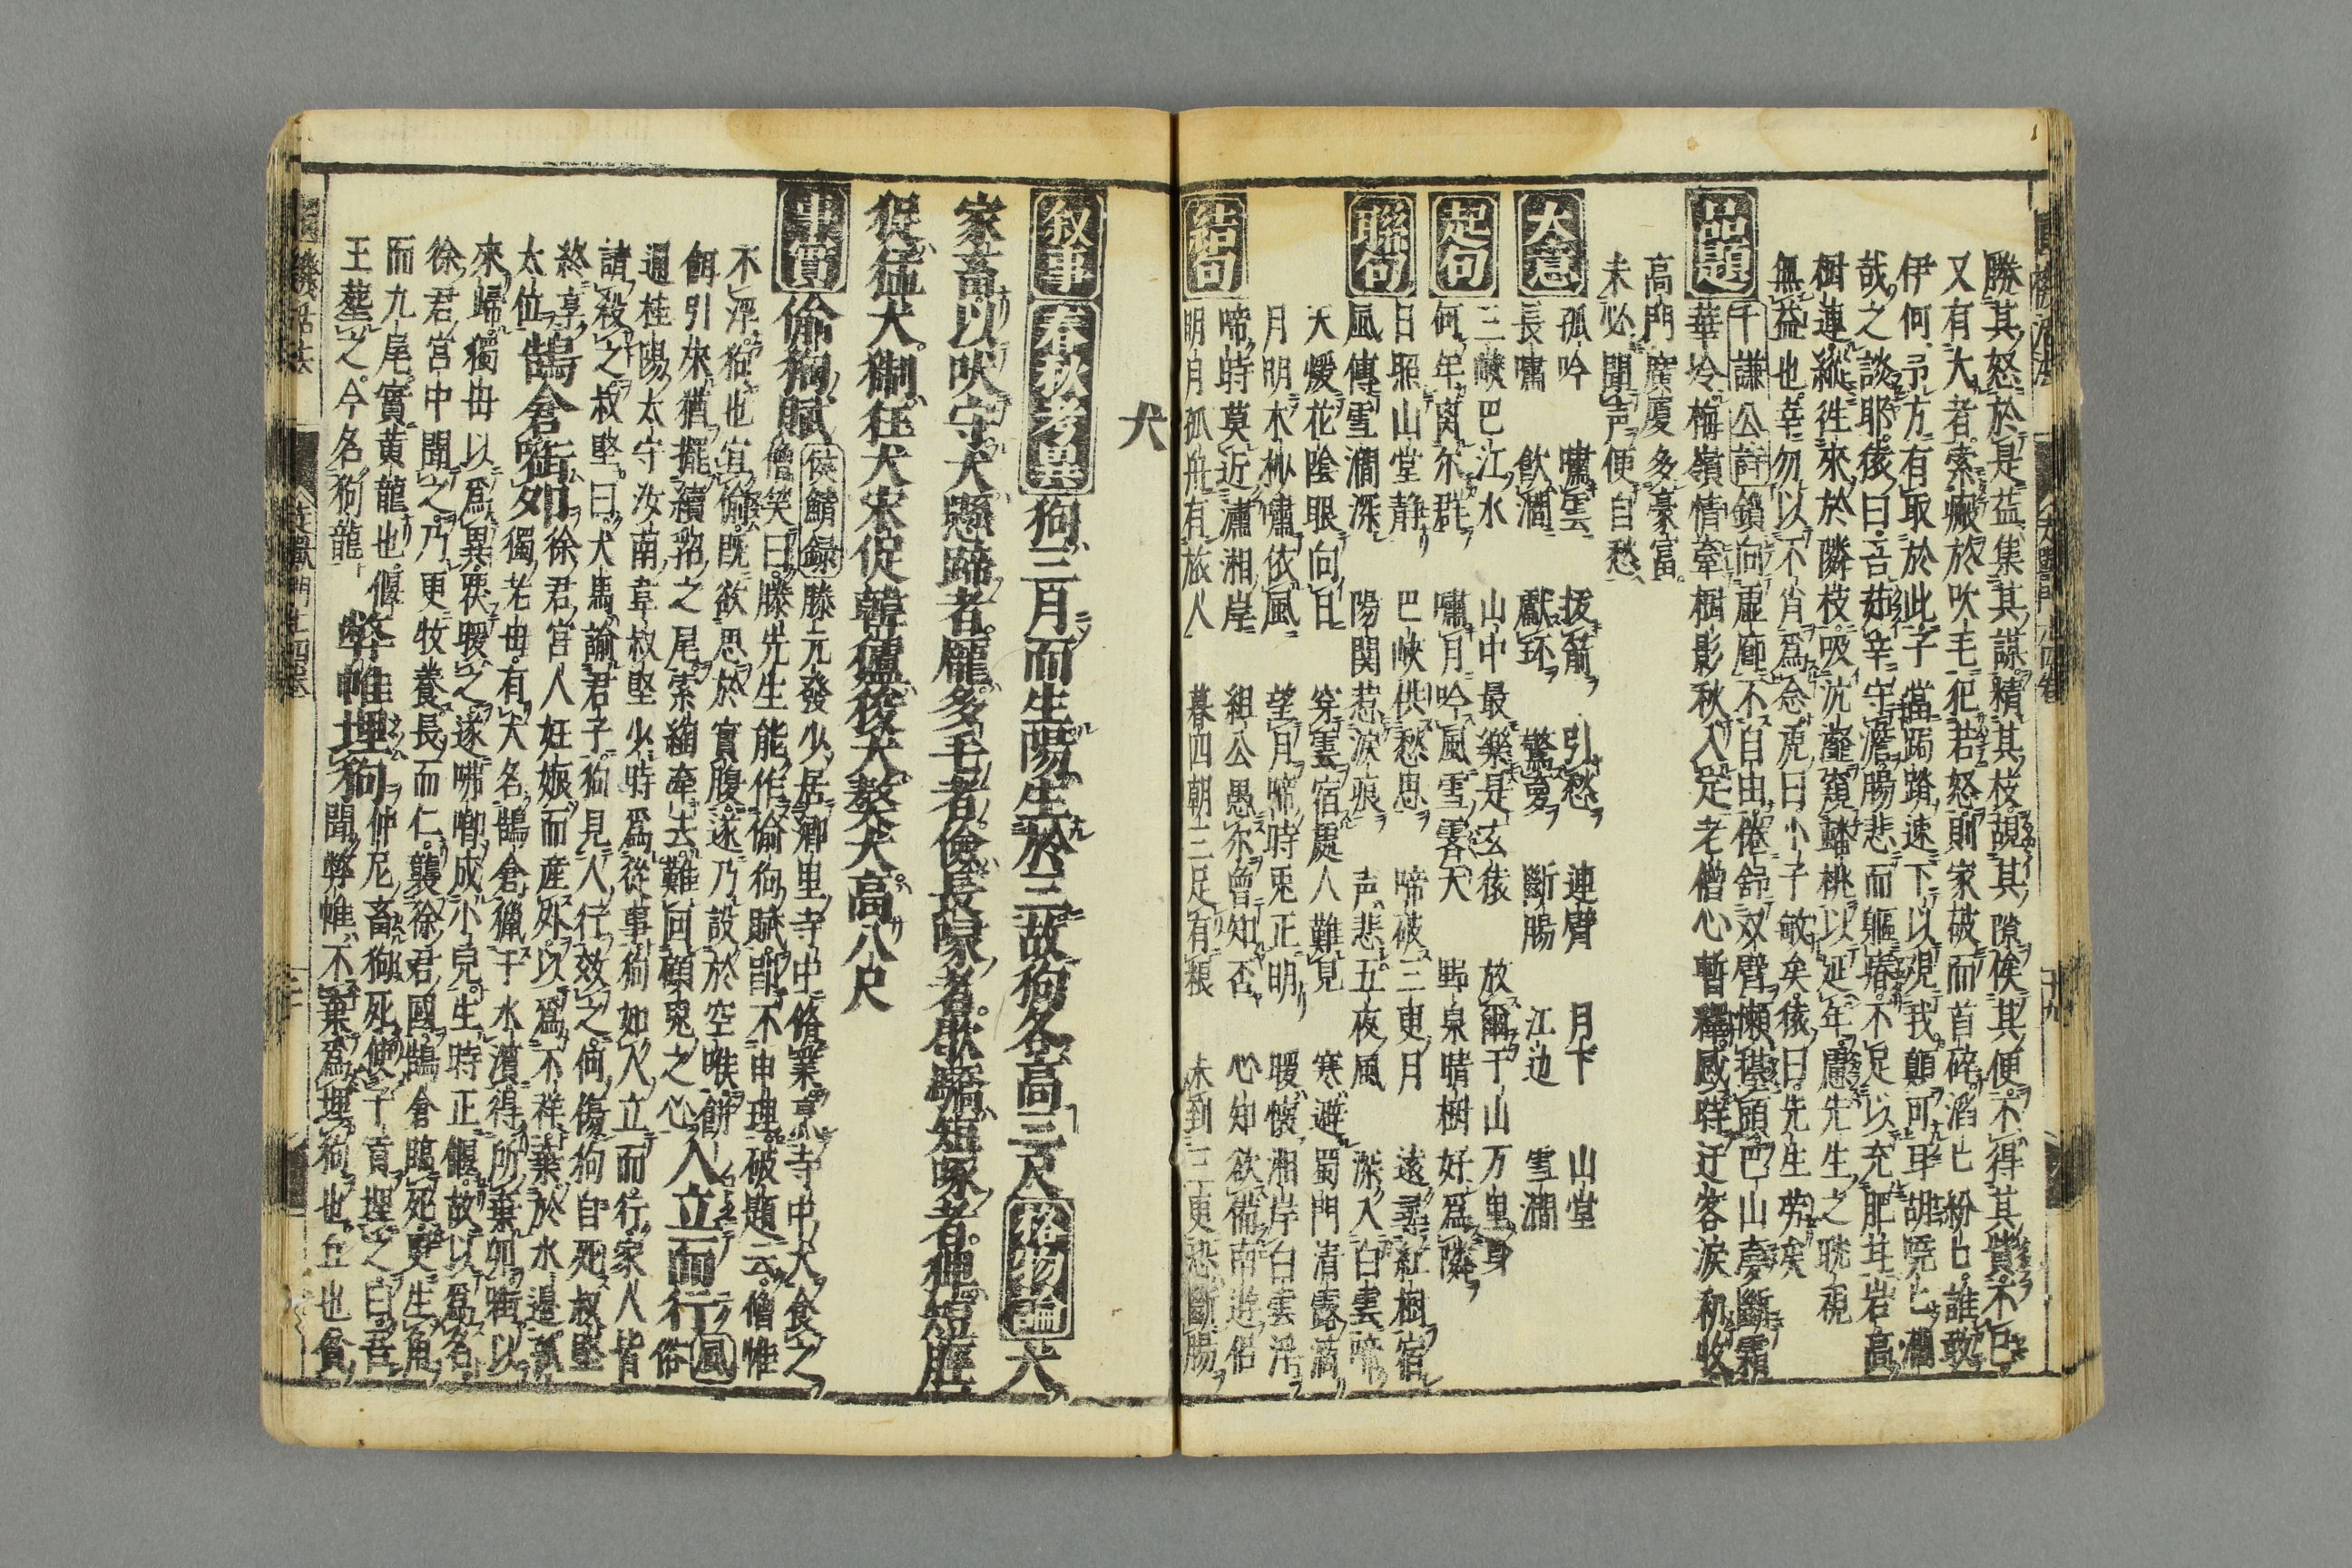 勝其怒於是益集其謀精其枝覘其隙俟其便不得其貲不已
又有大者索瘢於吹毛犯若怒則家破而首碎滔匕粉匕誰敢
伊何予方有取於此子當跼蹐速下以覘我顛可耳胡嘵匕瀾
哉之談耶猿曰吾茹辛守澹腸悲而軀瘠不足以充肥甘岩高
樹蓮縱徃來於隣枝吸沆瀣窺蟠桃以延年慮先生之眈視
無益也幸勿以不肖爲念虎曰小子敏矣猿曰先生労矣
品題 千謙公詩 鎖向虚廊不自由倦舒双臂懶擡頭巴山夢斷霜
華冷梅嶺情牽樹影秋入定老僧心暫釋感時迂客涙初收
高門廣厦多豪富
未必聞声便自愁
大意 孤吟 嘯雲 抜箭 引愁 連臂 月下 山堂
長嘯 飲澗 獻環 驚夢 斷腸 江边 雪澗
起句 三峽巴江水 山中最樂是玄猿 放爾千山万里身
何年离尔群 嘯月吟風雪霽天 野泉晴樹好爲隣
聯句 日照山堂静 巴峽供愁思 啼破三更月 遠尋紅樹宿
風傳雪澗深 陽関惹涙痕 声悲五夜風 深入白雲啼
天煖花陰眠向日 穿雲宿處人難見 寒避蜀門清露滴
月明木杪嘯依風 望月啼時兎正明 暖懷湘岸白雲浮
結句 啼時莫近瀟湘岸 組公愚尓曾知否 心知欲備南遊侶
明月孤舟有旅人 暮四朝三足有粮 未到三更恐斷腸
犬
叙事 春秋考異 狗三月而生陽生於三故狗各高三尺 格物論 犬
家畜以吠守犬懸蹄者龐多毛者儉長喙者歇驕短喙者猈短脛
猩猛犬猘狂犬宋促韓獹猣犬獒犬高八尺
事實 偷狗賦 侯鯖録 滕元發少居郷里寺中脩業烹寺中犬食之
僧笑曰滕先生能作偷狗賦即不申理破題云僧惟
不浮狗也宜偷既欲思於實腹遂乃設於空喉餅
餌引來猶擺續貂之尾索綯牽去難回顧兎之心 人立而行 風俗
通桂陽太守汝南韋叔堅少時爲從事狗如人立而行家人皆
請殺之叔堅曰犬馬諭君子狗見人行效之何傷狗自死叔堅
終享太位 鵠倉啣如 徐君宮人妊娠而産外以爲不祥棄於水邊孤
獨老母有犬名鵠倉獵于水濱得所棄卵銜以
來歸獨母以爲異覆煖之遂咈啣成小兒生時正偃故以爲名
徐君宮中聞之乃更牧養長而仁襲徐君國鵠倉臨死更生角
而九尾實黄龍也偃王葬之今名狗龍 弊帷埋狗 仲尼畜狗死使子貢埋之曰吾
聞弊帷不棄爲埋狗也丘也貧